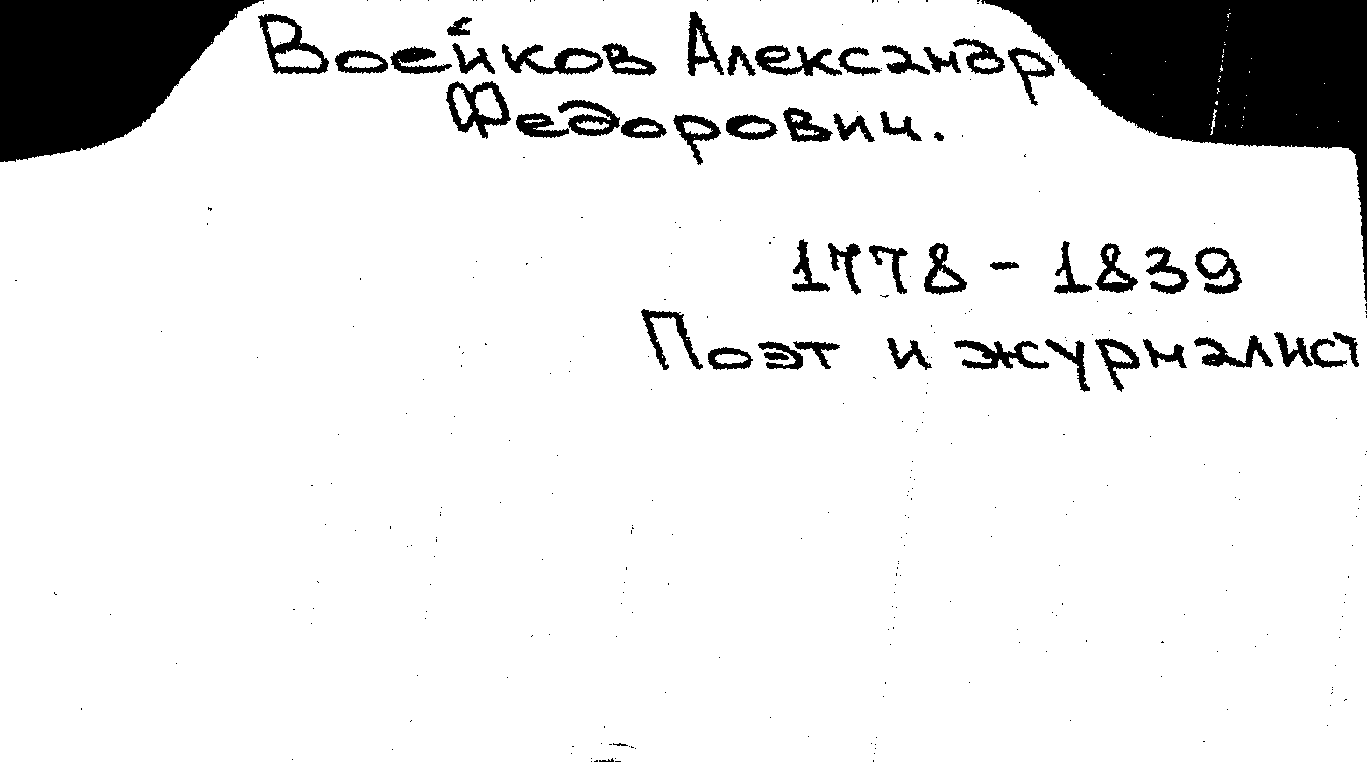 Воейков Александр
Федорович.
1778 - 1839
Поэт и журналист